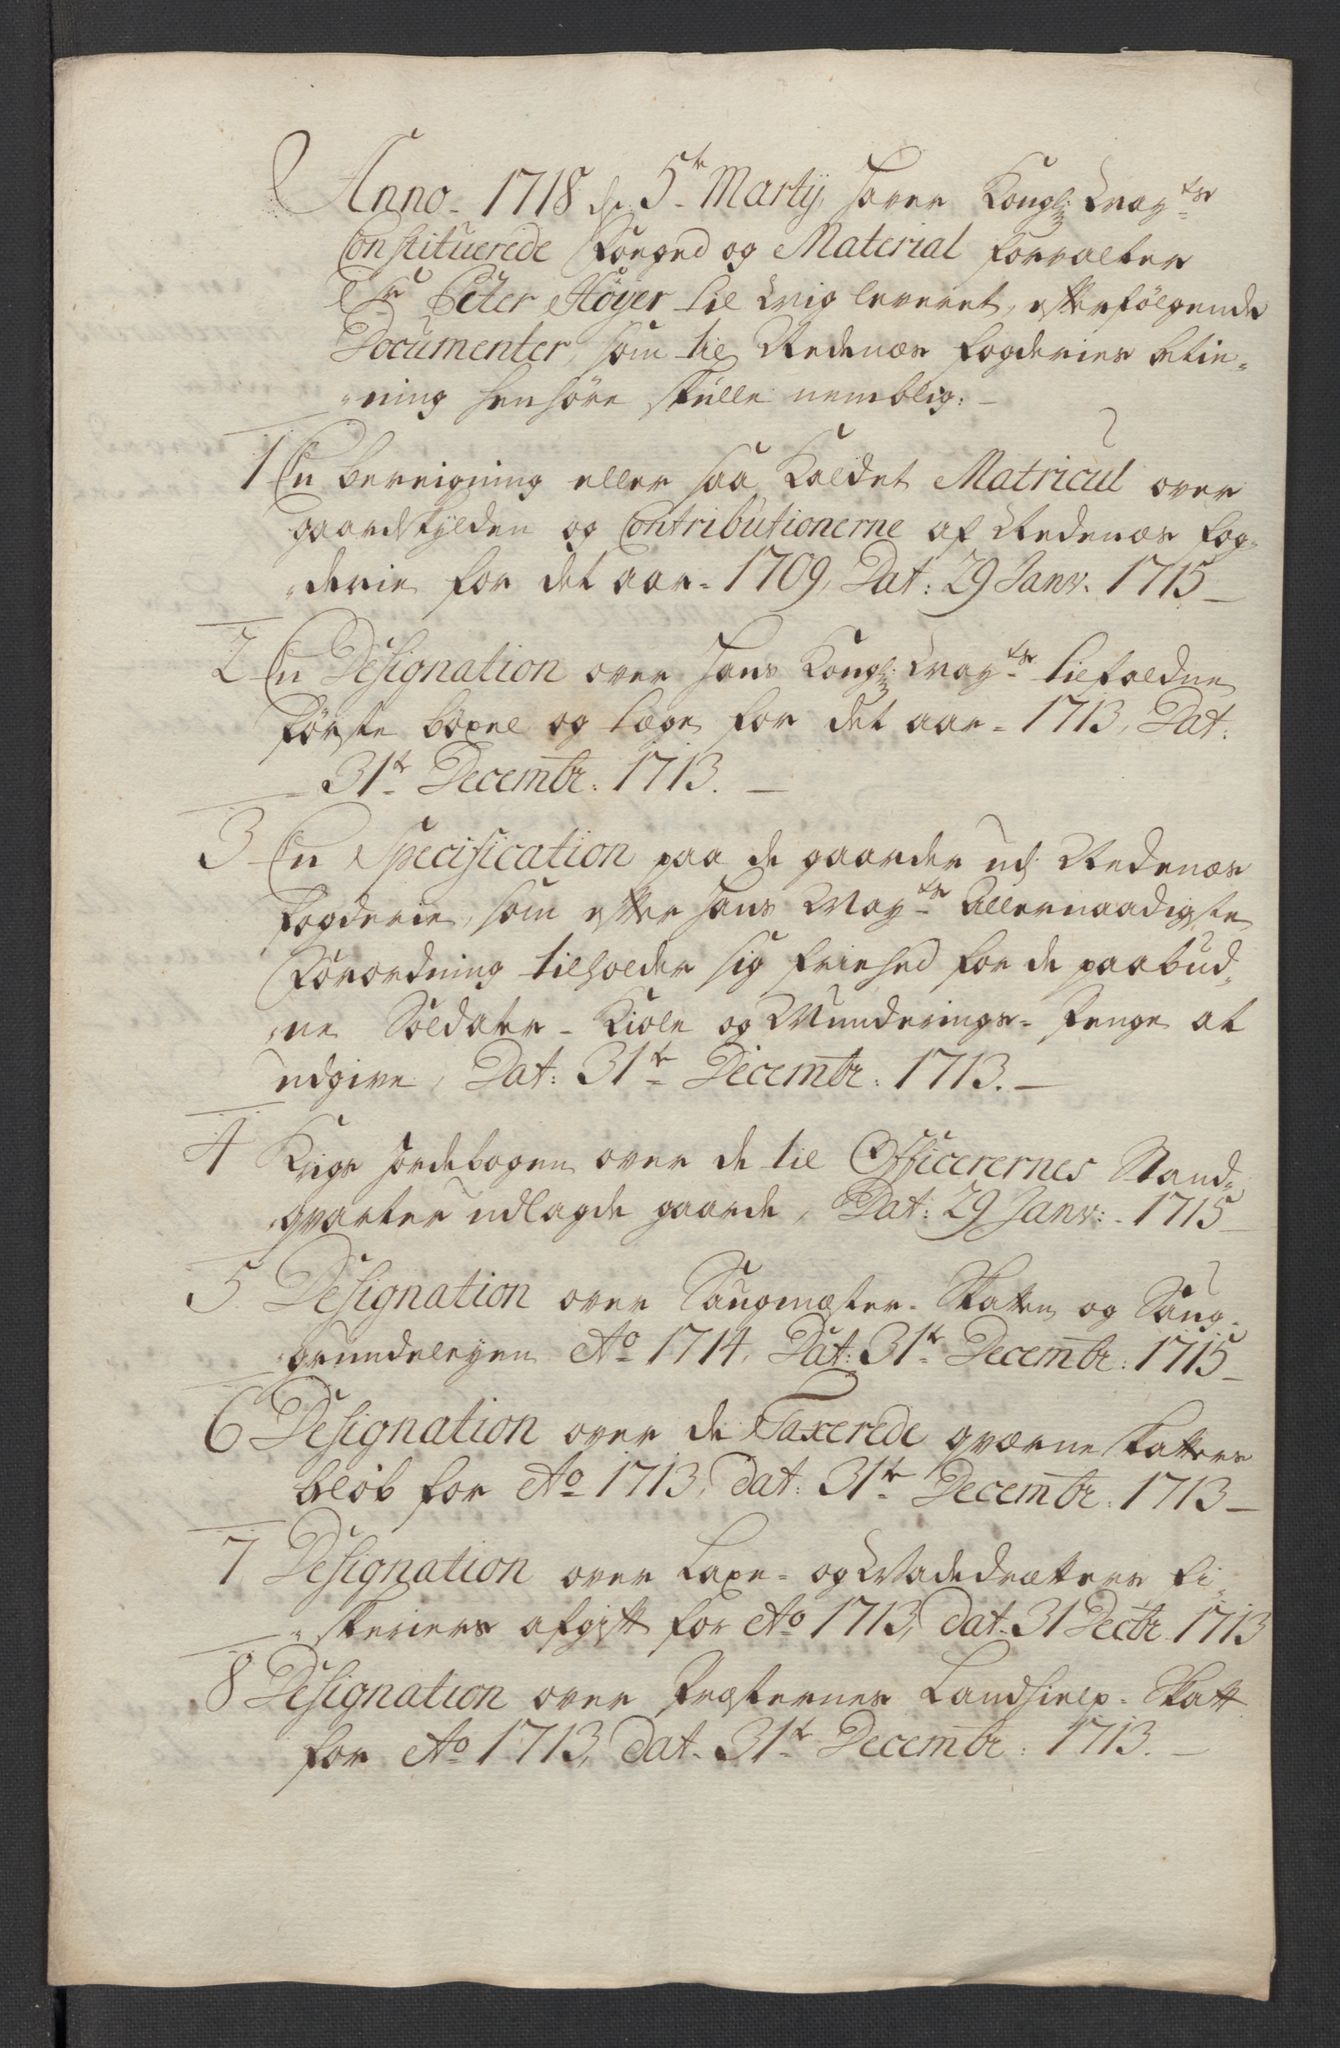 Anno 1718 d. 5te Martij, haver Kongl: May:ts
Constituerede Foeged og Material forvalter
Sr. Peter Høyer til mig leveret, efterfølgende
Documenter, som til Nedenæs fogderies betie-
ning henhøre skulle nemblig: -
1 En beregning eller saa kaldet Matricul over
gaardskylden og Contributionerne af Nedenæs fog-
derie for det aar 1709, Dat: 29 Janv. 1715 -
2 En Designation over hans Kongl: May:ts tilfaldne
første böxel og tæge for det aar 1713, Dat:
31te Decembr: 1713. -
3 En Specification paa de gaarder udj Nedenæs
fogderie, som efter hans May:ts Allernaadigste
Forordning tilholder sig friehed for de paabud-
ne Soldater - Kiole og Munderings- Penge at
udgive, Dat: 31te Decembr: 1713. -
4 Krigs Jordebogen over de til Officerernes Stand-
qvarter udlagde gaarde, Dat: 29 Janv: 1715 -
5 Designation over Saugmester- Skatten og Saug-
grundeleyen Ao 1714, Dat: 31te Decembr: 1715 -
6 Designation over de Taxerede qværne skatters
beløb for Ao 1713, dat: 31te Decembr: 1713 -
7 Designation over Laxe- og Wadedrætters fi-
skeriers afgift for Ao 1713, dat. 31 Decbr. 1713
8 Designation over Præsternes Landhielp- Skatt
for Ao 1713, dat. 31te Decembr: 1713. -